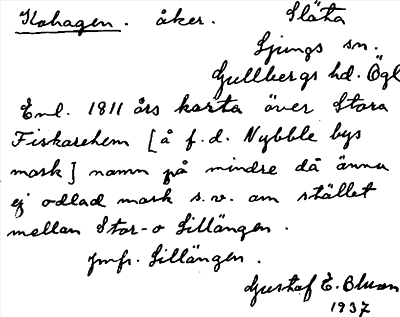 Kohagen. åker. Släta
Ljungs sn.
Gullbergs hd. Ögl
Enl. 1811 års karta över Stora
Fiskarehem [å f.d. Nybble bys
mark] namn på mindre då ännu
ej odlad mark s.v. om stället
mellan Stor-o Lillängen.
Jmfr. Lillängen.
Gustaf E. Bluon
1937